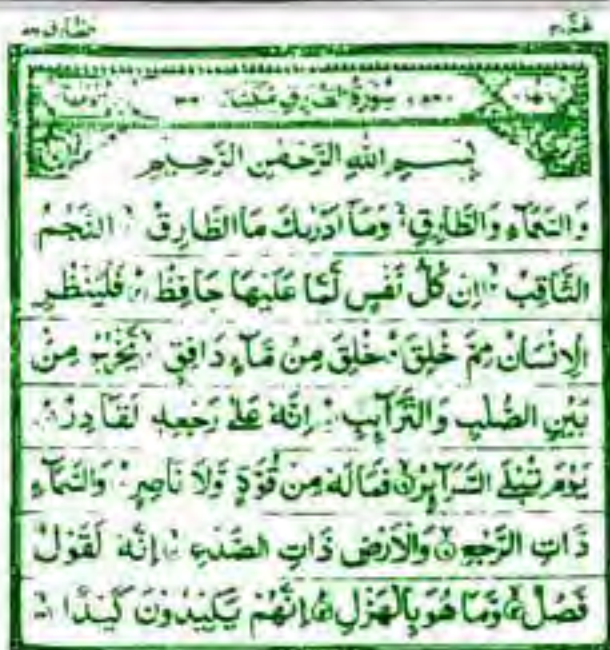 عَمَّ ٣٠
سُورَةُ الطَّارِقِ مَكِّيَّةٌ
بِسْمِ اللهِ الرَّحْمٰنِ الرَّحِيْمِ
وَالسَّمَآءِ وَالطَّارِقِ وَمَآ اَدْرٰىكَ مَاالطَّارِقُ النَّجْمُ
الثَّاقِبُ اِنْ كُلُّ نَفْسٍ لَّمَّا عَلَيْهَا حَافِظٌ فَلْيَنْظُرِ
الْاِنْسَانُ مِمَّ خُلِقَ خُلِقَ مِنْ مَّآءٍ دَافِقٍ يَّخْرُجُ مِنْۢ
بَيْنِ الصُّلْبِ وَالتَّرَآئِبِ اِنَّهٗ عَلٰى رَجْعِهٖ لَقَادِرٌ
يَوْمَ تُبْلَى السَّرَآئِرُ فَمَالَهٗ مِنْ قُوَّةٍ وَّلَا نَاصِرٍ وَالسَّمَآءِ
ذَاتِ الرَّجْعِ وَالْاَرْضِ ذَاتِ الصَّدْعِ اِنَّهٗ لَقَوْلٌ
فَصْلٌ وَّمَا هُوَ بِالْهَزْلِ اِنَّهُمْ يَكِيْدُوْنَ كَيْدًا